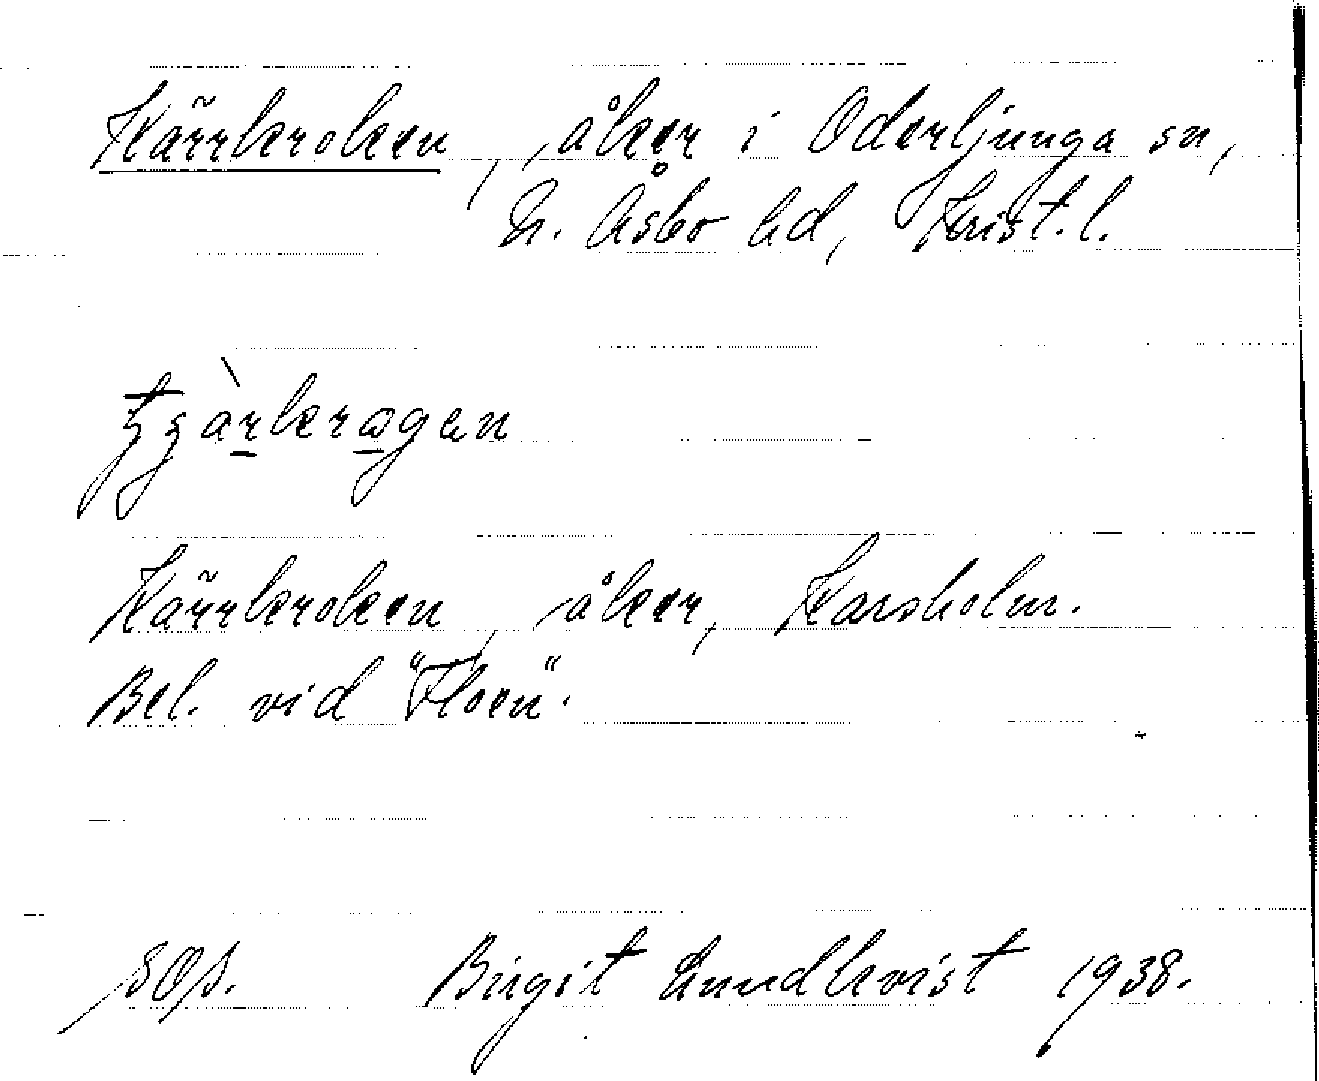 Kärrkroken, åker i Oderljunga sn,
N. Åsbo hd, Krist. l.
Kärrkroken, åker, Karsholm.
Bel. vid "Floen".
SOS. Birgit Lundkvist 1938.